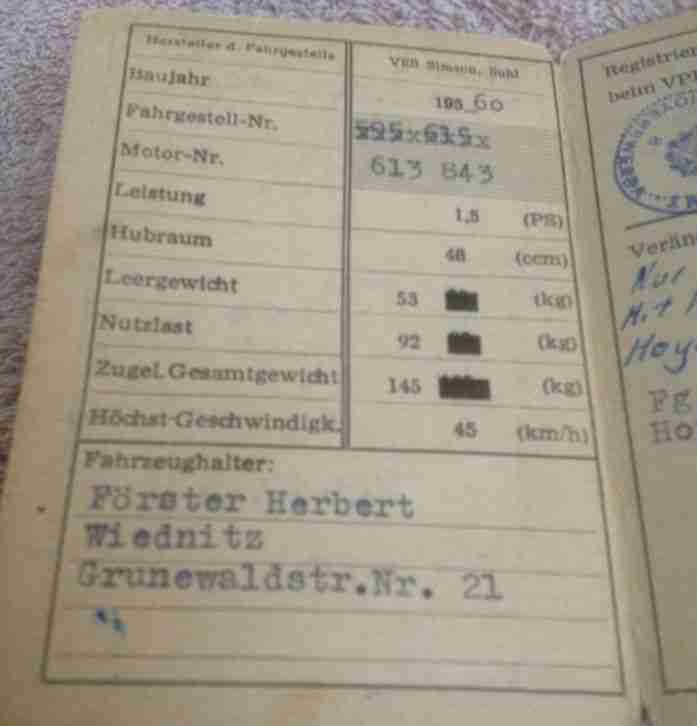 Hersteller d. Fahrgestells VEB Simson, Suhl
Baujahr 195 60
Fahrgestell-Nr.
Motor-Nr. 613 843
Leistung 1,5 (PS)
Hubraum 48 (ccm)
Leergewicht 53 (kg)
Nutzlast 92 (kg)
Zugel. Gesamtgewicht 145 (kg)
Höchst-Geschwindigk. 45 (km/h)
Fahrzeughalter:
Förster Herbert
Wiednitz
Grunewaldstr.Nr. 21
Registrier
beim VE
Verän
Nur
Mit
Hoy
Pg
Ho